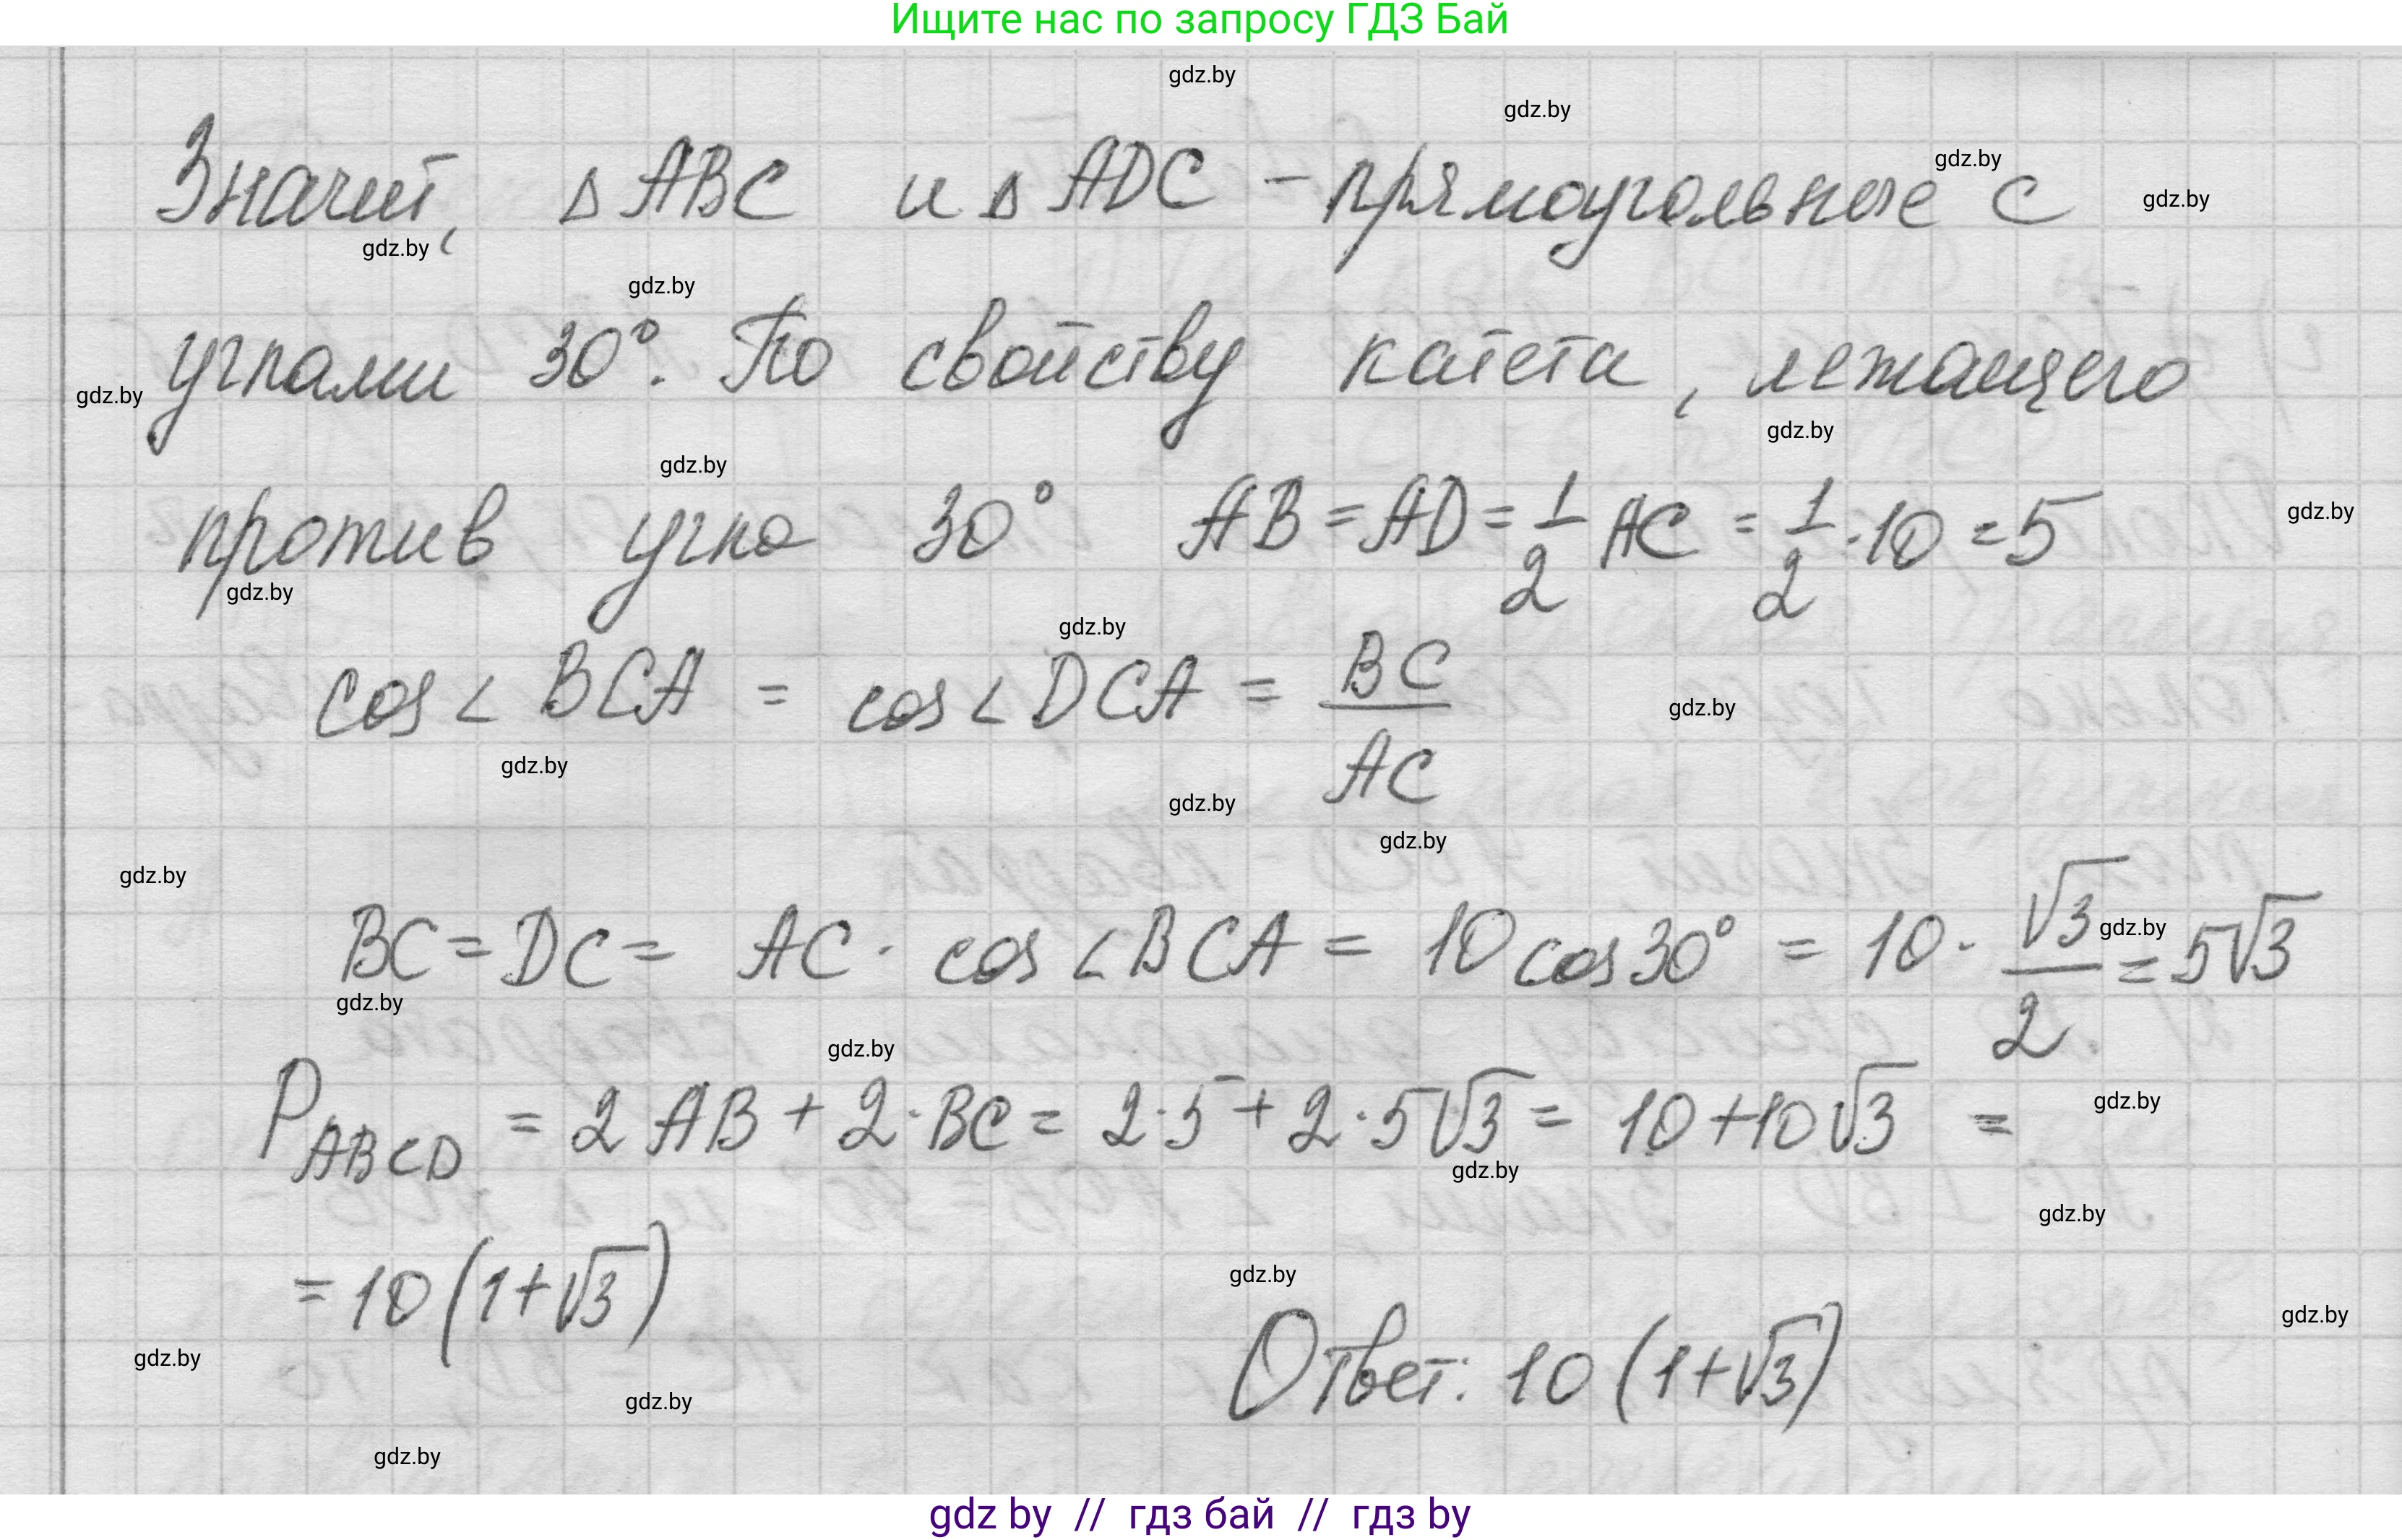 Ищите нас по запросу ГДЗ Бай
gdz.by
gdz.by
gdz.by
gdz.by
Значит, Δ ABC и Δ ADC – прямоугольные с
gdz.by
gdz.by
углами 30°. По свойству катета, лежащего
gdz.by
gdz.by
gdz.by
против угла 30° AB = AD = 1/2 AC = 1/2 · 10 = 5
gdz.by
gdz.by
gdz.by
cos ∠ BCA = cos ∠ DCA = BC/AC
gdz.by
gdz.by
gdz.by
gdz.by
gdz.by
BC = DC = AC · cos ∠ BCA = 10 cos 30° = 10 · √3/2 = 5√3
gdz.by
gdz.by
gdz.by
P ABCD = 2 AB + 2 · BC = 2 · 5 + 2 · 5√3 = 10 + 10√3 =
gdz.by
gdz.by
gdz.by
= 10 (1 + √3)
gdz.by
gdz.by
Ответ: 10 (1 + √3)
gdz.by
gdz.by
gdz.by
gdz by // гдз бай // гдз by